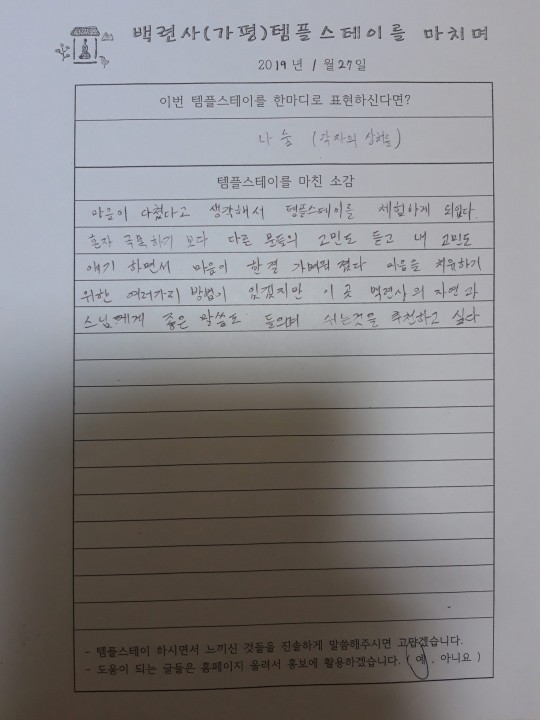 백련사(가평)템플스테이를 마치며
2019년 1월 27일
이번 템플스테이를 한마디로 표현하신다면?
나눔 (각자의 상처를)
템플스테이를 마친 소감
마음이 다쳤다고 생각해서 템플스테이를 체험하게 되었다.
혼자 극복하기 보다 다른 분들의 고민도 듣고 내 고민도
얘기 하면서 마음이 한결 가벼워 졌다 마음을 치유하기
위한 여러가지 방법이 있겠지만 이 곳 백련사의 자연과
스님에게 좋은 말씀도 들으며 쉬는것을 추천하고 싶다
- 템플스테이 하시면서 느끼신 것들을 진솔하게 말씀해주시면 고맙겠습니다.
- 도움이 되는 글들은 홈페이지 올려서 홍보에 활용하겠습니다. ( 예 , 아니요 )